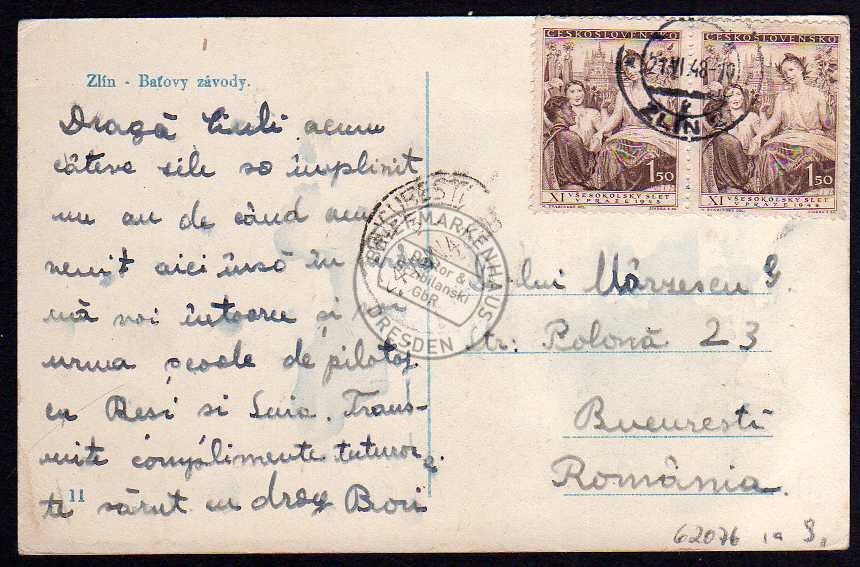 Zlín - Baťovy závody.
Dragă Cuili acum
câteva zile so împlinit
un an de când am
venit aici însă în
mă voi întoarce și voi
urma școale de pilotaj
cu Resi si Luia. Trans-
mite complimente tuturor.
te sărut cu drag Bori
11
ČESKOSLOVENSKO
1 50
XI VŠESOKOLSKÝ SLET
V PRAZE 1948
ČESKOSLOVENSKO
1 50
XI VŠESOKOLSKÝ SLET
V PRAZE 1948
21.VI.48-10
ZLÍN 2
BUCUREȘTI
BRIEFMARKENHAUS
Daktor &
GbR
DRESDEN
D-lui Mărzescu G.
str: Polonă 23
București
România.
62076